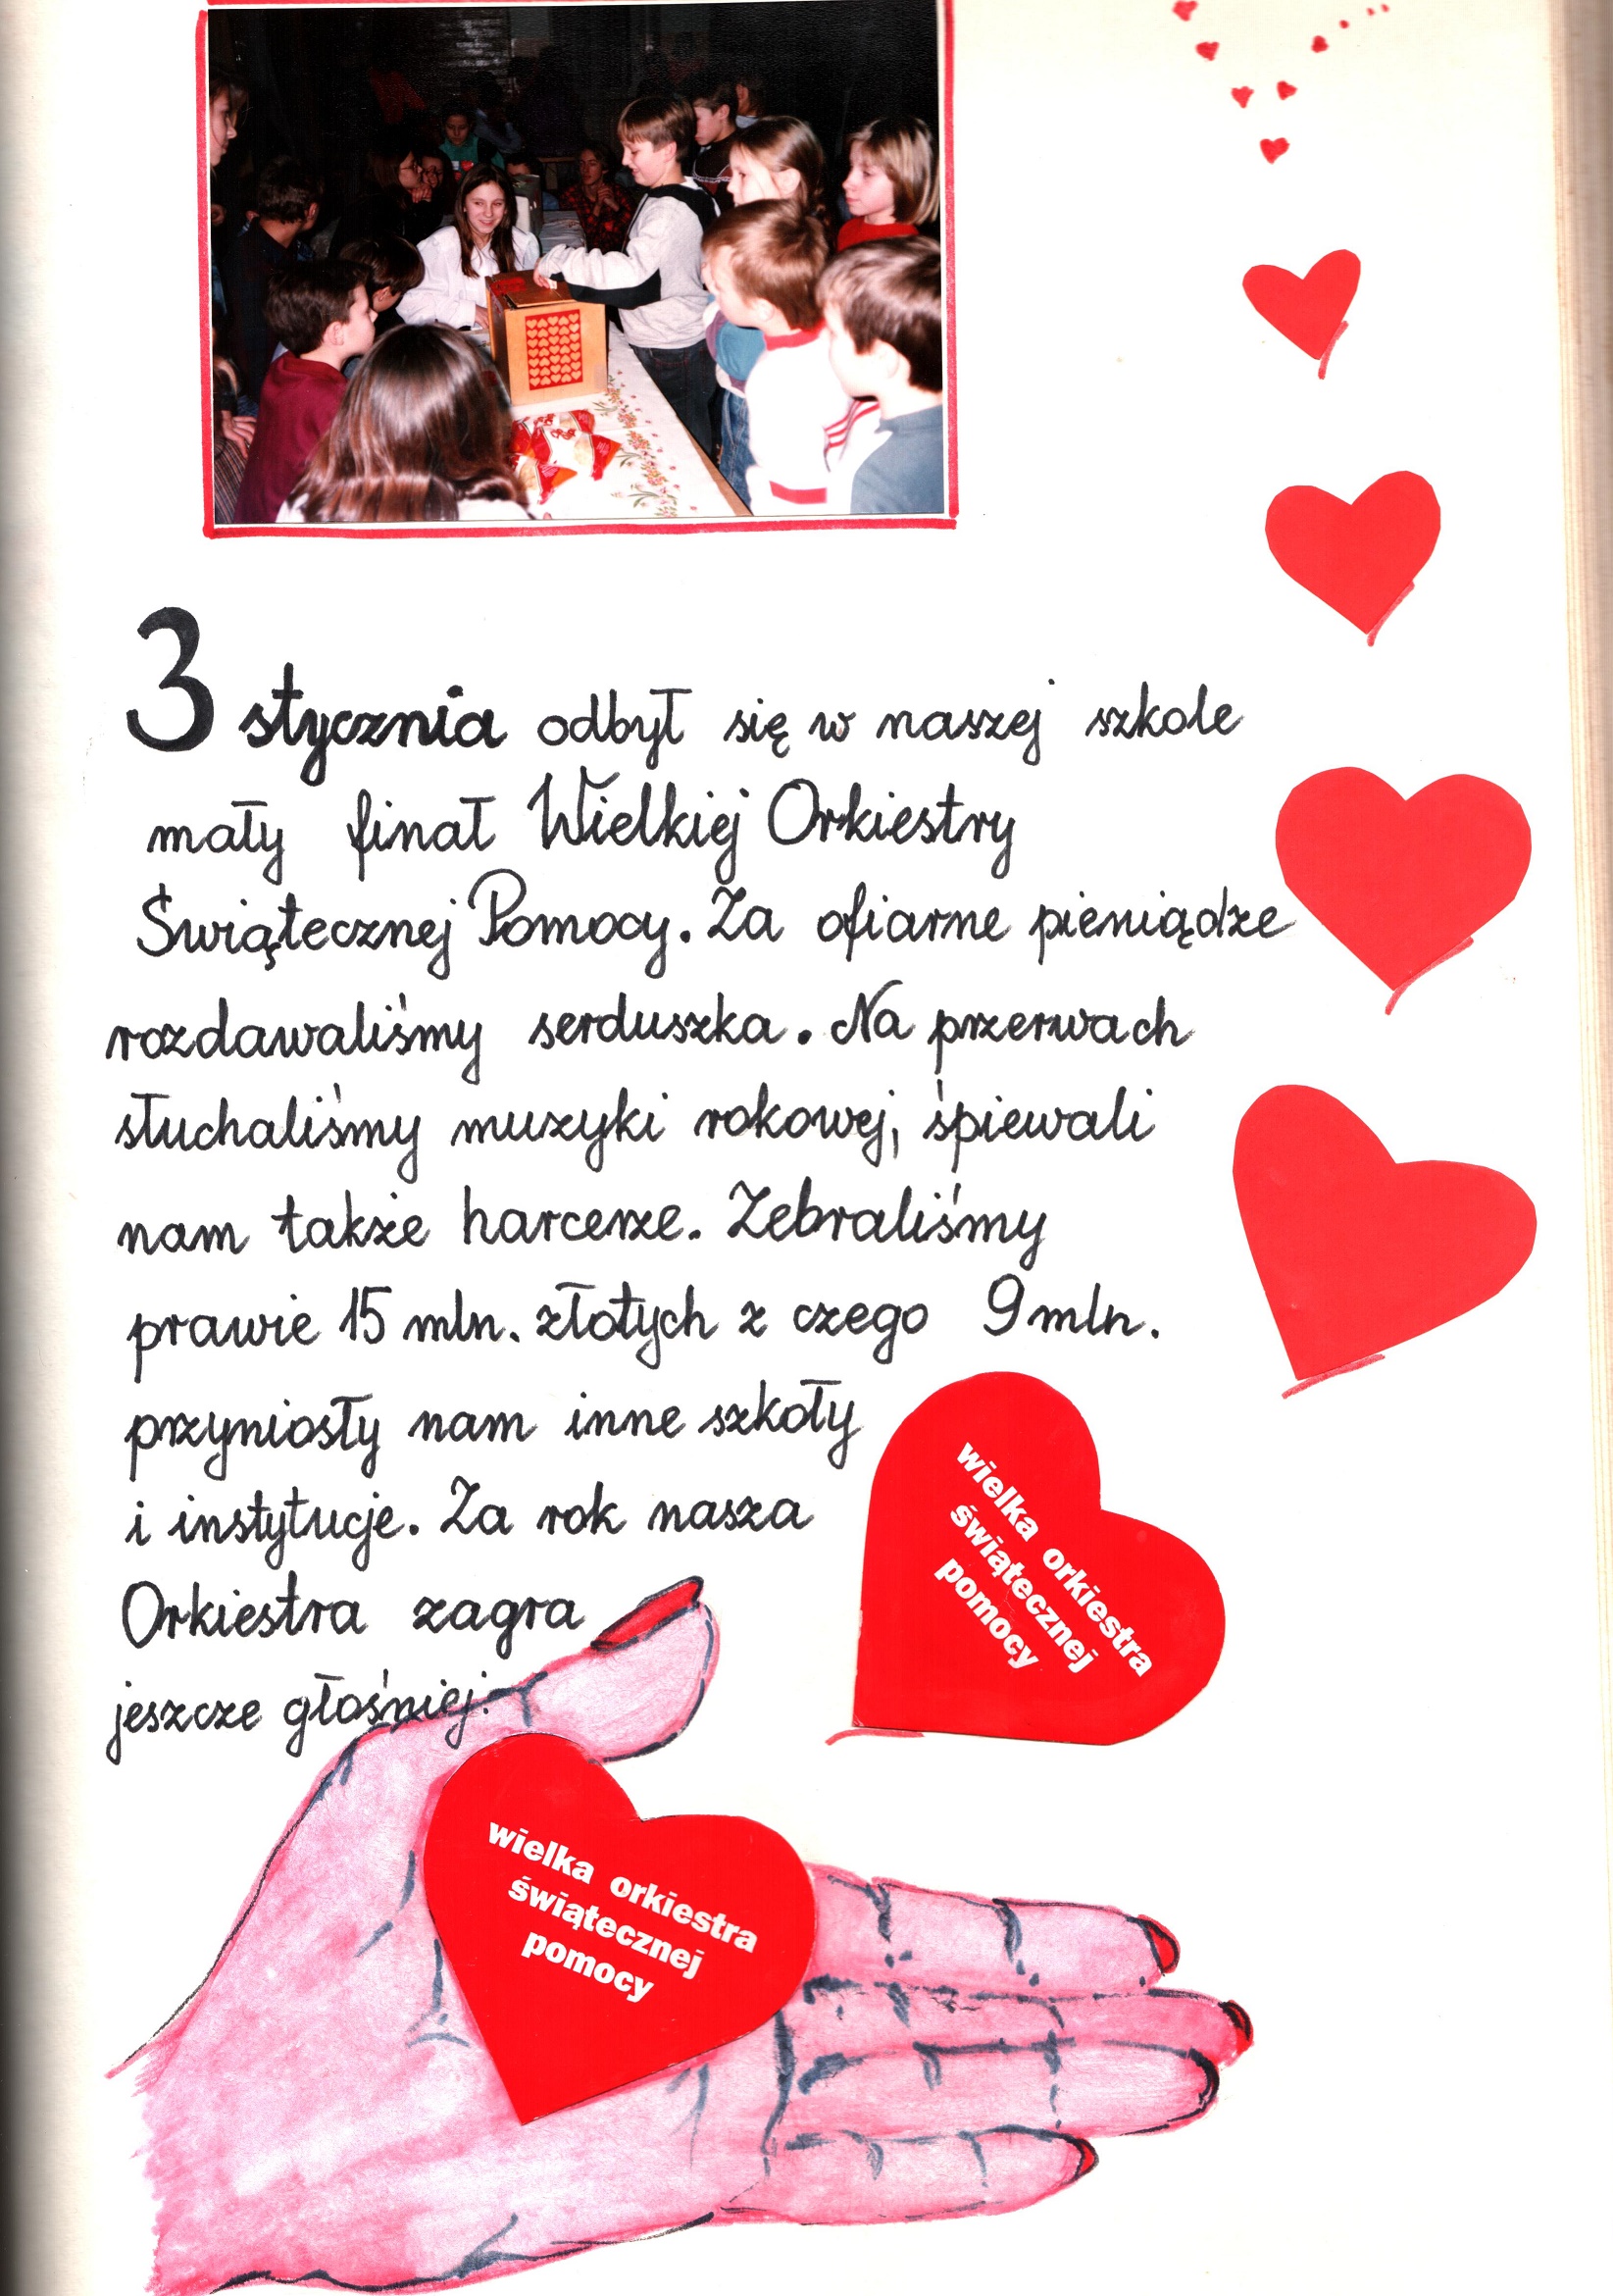 3 stycznia odbył się w naszej szkole
mały finał Wielkiej Orkiestry
Świątecznej Pomocy. Za ofiarne pieniądze
rozdawaliśmy serduszka. Na przerwach
słuchaliśmy muzyki rokowej, śpiewali
nam także harcerze. Zebraliśmy
prawie 15 mln. złotych z czego 9 mln.
przyniosły nam inne szkoły
i instytucje. Za rok nasza
Orkiestra zagra
jeszcze głośniej.
wielka orkiestra
świątecznej
pomocy
wielka orkiestra
świątecznej
pomocy